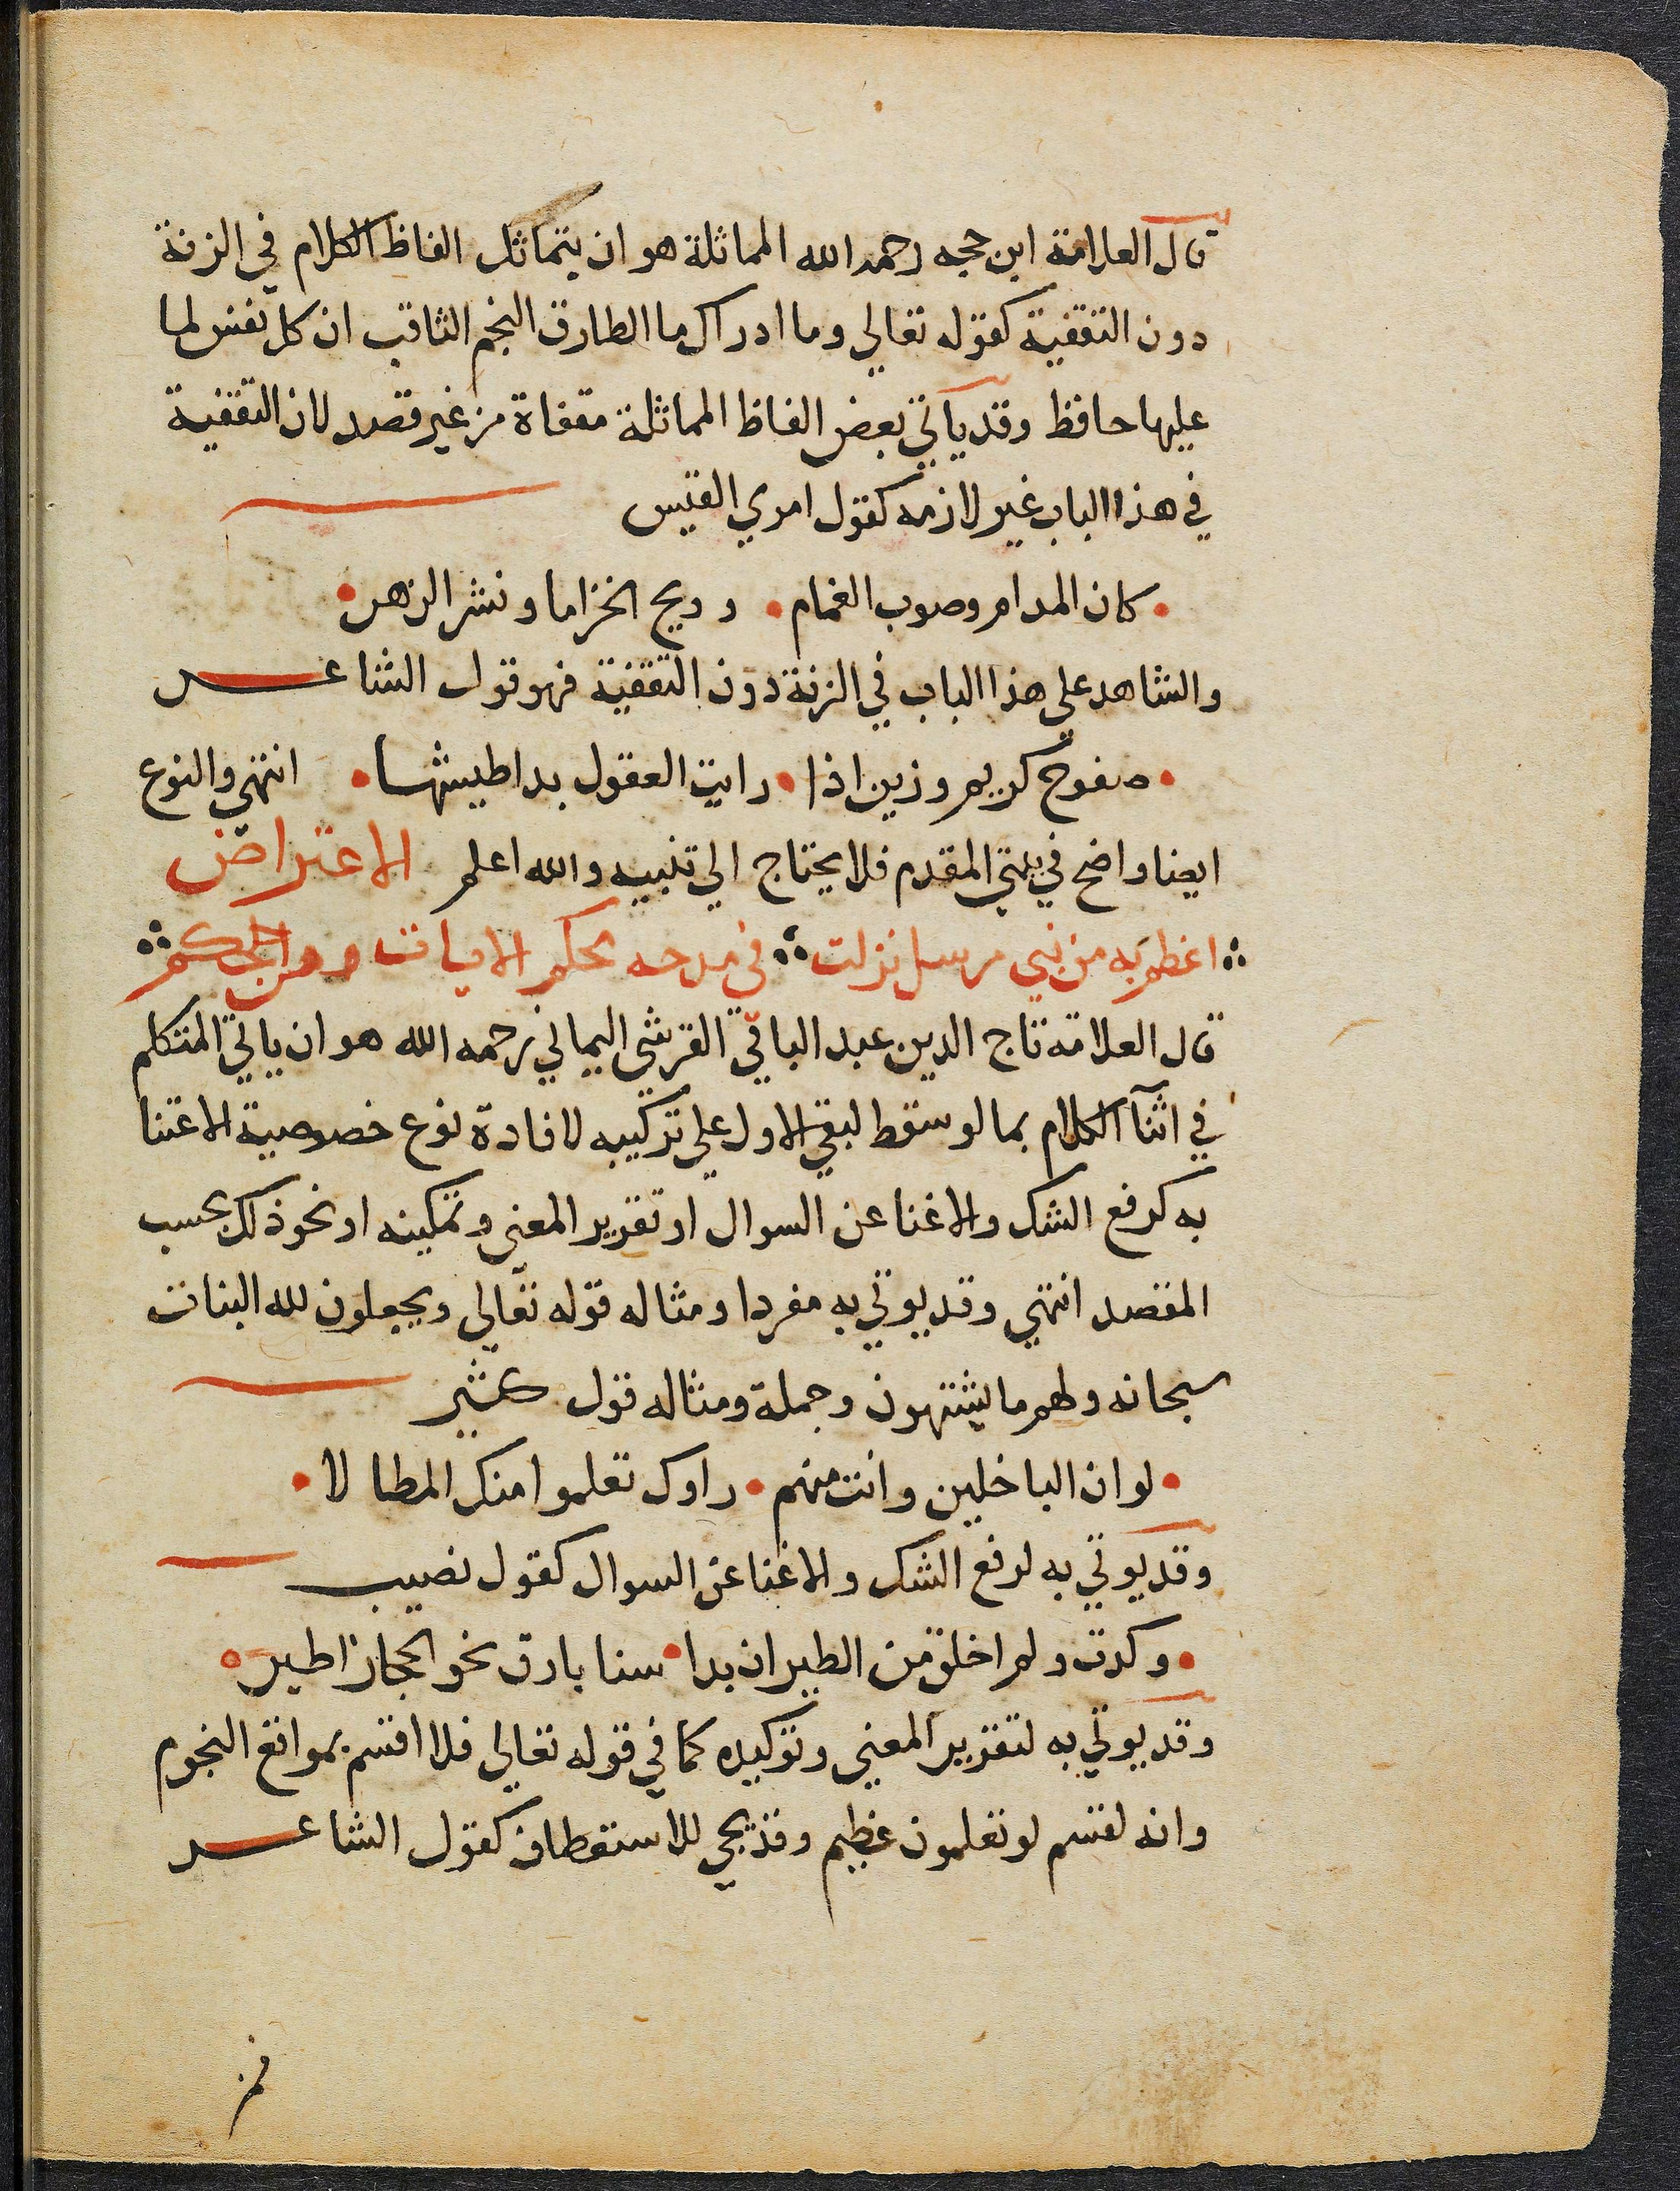 قال العلامة ابن حجه رحمه الله المماثلة هو ان يتماثل الفاظ الكلام في الزنة
دون التقفية كقوله تعالي وما ادراك ما الطارق النجم الثاقب ان كل نفس لما
عليها حافظ وقد ياتي بعض الفاظ المماثلة مقفاة من غير قصد لان التقفية
في هذا الباب غير لازمه كقول امري القيس
كان المدام وصوب الغمام • وريح الخزاما ونشر الزهر
والشاهد علي هذا الباب في الزنة دون التقفية فهو قول الشاعر
صفوح كريم وزين اذا • رايت العقول بدا طيشها • انتهي والنوع
ايضا واضح في بيتي المقدم فلا يحتاج الي تنبيه والله اعلم الاعتراض
اعظم به من نبي مرسل نزلت ∴ في مدحه محكم الايات
قال العلامة تاج الدين عبد الباقي القرشي اليماني رحمه الله هو ان ياتي المتكلم
في اثنآ الكلام بما لو سقط لبقي الاول علي تركيبه لافادة نوع خصوصية الاعتنا
به كرفع الشك والاغنا عن السوال او تقرير المعني وتمكينه او نحو ذلك بحسب
المقصد انتهي وقد يوتي به مفردا ومثاله قوله تعالي ويجعلون لله البنات
سبحانه ولهم ما يشتهون وجملة ومثاله قول كثير
• لو ان الباخلين وانت منهم • راوك تعلموا منك المطالا •
وقد يوتي به لرفع الشك والاغنا عن السوال كقول نصيب
• وكدت ولم اخلق من الطير ان بدا • سنا بارق نحو الحجاز اطير •
وقد يوتي به لتقرير المعني وتوكيده كما في قوله تعالي فلا اقسم بمواقع النجوم
وانه لقسم لو تعلمون عظيم وقد يجي للاستعطاف كقول الشاعر